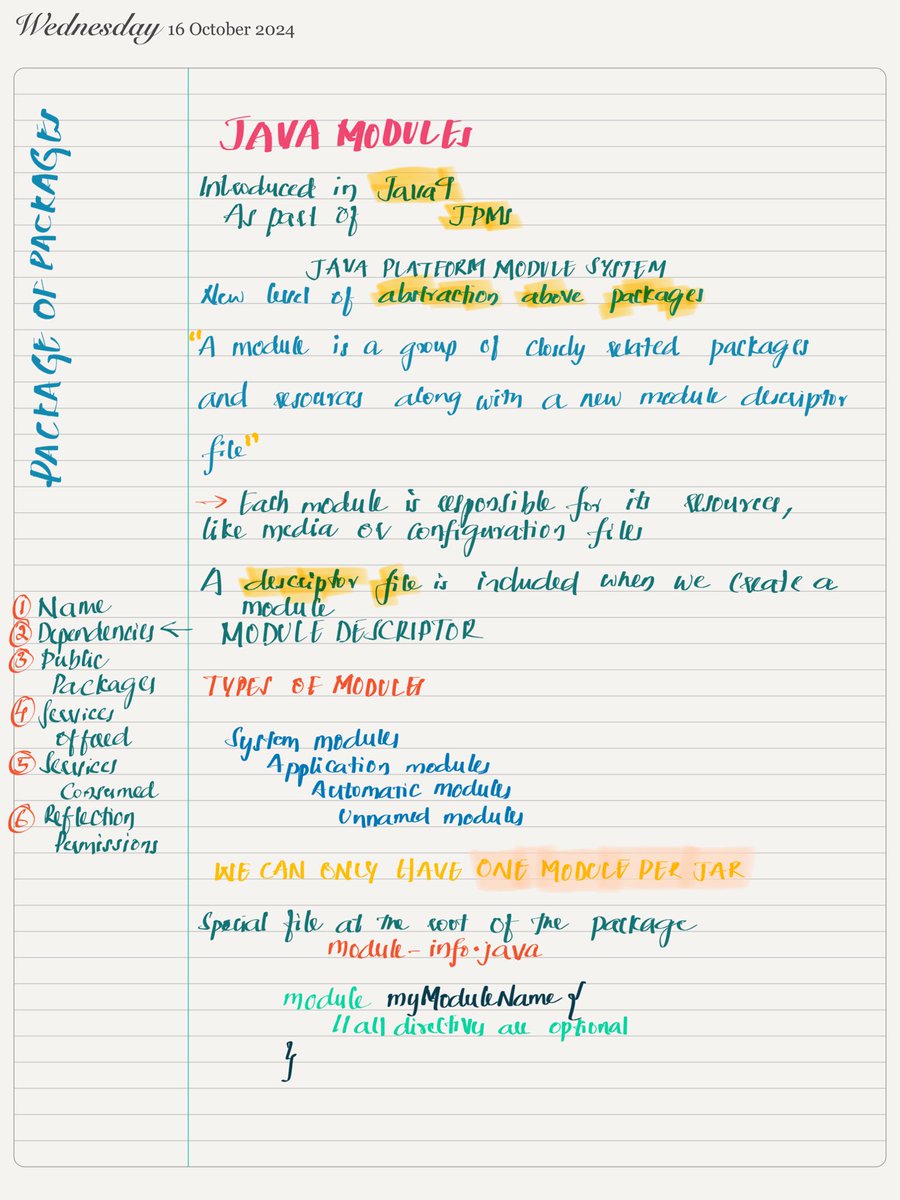 Wednesday 16 October 2024
PACKAGE OF PACKAGES
JAVA MODULES
Introduced in Java9
As part of JPMS
JAVA PLATFORM MODULE SYSTEM
New level of abstraction above packages
"A module is a group of closely related packages
and resources along with a new module descriptor
file"
→ Each module is responsible for its resources,
like media or configuration files
A descriptor file is included when we create a
module
MODULE DESCRIPTOR
① Name
② Dependencies ←
③ Public
Packages
④ Services
offered
⑤ Services
Consumed
⑥ Reflection
Permissions
TYPES OF MODULES
System modules
Application modules
Automatic modules
Unnamed modules
WE CAN ONLY HAVE ONE MODULE PER JAR
Special file at the root of the package
module-info.java
module myModuleName {
//all directives are optional
}